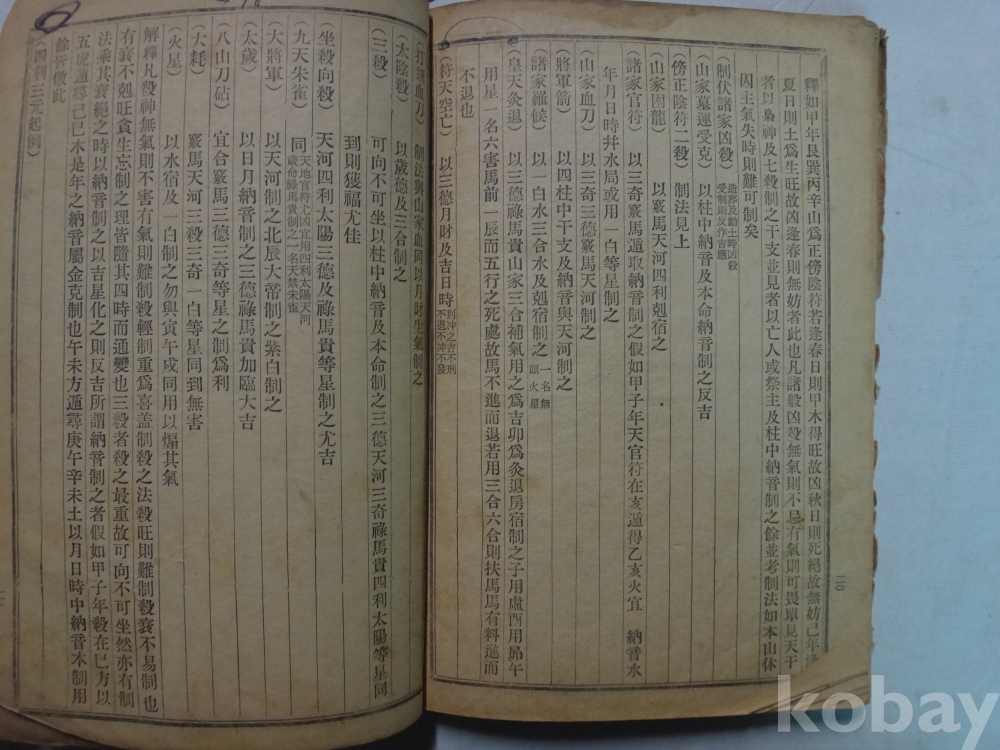 釋如甲年艮巽丙辛山爲正傍陰符若逢春日則甲木得旺故凶秋日則死絕故無妨己年
夏日則土爲生旺故凶逢春則無妨者此也凡諸殺凶殺無氣則不忌有氣則可畏單見天干
者以梟神及七殺制之干支並見者以亡人或祭主及柱中納音制之餘並考制法如本山休
囚主氣失時則難可制矣
(制伏諸家凶殺) 造葬及動土時凶殺受制則反作吉應
(山家墓運受克) 以柱中納音及本命納音制之反吉
(傍正陰符二殺) 制法見上
(山家困龍) 以竅馬天河四利剋宿之
(諸家官符) 以三奇竅馬遁取納音制之假如甲子年天官符在亥遁得乙亥火宜 納音水
年月日時幷水局或用一白等星制之
(山家血刀) 以三奇三德竅馬天河制之
(將軍箭) 以四柱中干支及納音與天河制之
(諸家羅候) 以一白水三合水及剋宿制之 一名無頭火星
皇天灸退) 以三德祿馬貴山家三合補氣用之爲吉卯爲灸退房宿制之子用虛酉用昴午
用星一名六害馬前一辰而五行之死處故馬不進而退若用三合六合則扶馬馬有料進而
不退也
(符天空亡) 以三德月財及吉日時 利冲之吉不刑不退不冲不發
(打頭血刀) 制法與山家血同以月財生氣制之
(大陰殺) 以歲德及三合制之
(三殺) 可向不可坐以柱中納音及本命制之三德天河三奇祿馬貴四利太陽等星同
到則獲福尤佳
(坐殺向殺) 天河四利太陽三德及祿馬貴等星制之尤吉
九天朱雀) 同 天地官符尤凶宜用四利太陽天河歲命祿馬貴制之一名天禁朱雀
(大將軍) 以天河制之北辰大帝制之紫白制之
(太歲) 以日月納音制之三德祿馬貴加臨大吉
八山刀砧) 宜合竅馬三德三奇等星之制爲利
(大耗) 竅馬天河三殺三奇一白等星同到無害
(火星) 以水宿及一白制之勿與寅午戌同用以煽其氣
解釋凡殺神無氣則不害有氣則難制殺輕制重爲喜盖制殺之法殺旺則難制殺衰不易制也
有衰不剋旺貪生忘制之理皆隨其四時而通變也三殺者殺之最重故可向不可坐然亦有制
法乘其衰絕之時以納音制之以吉星化之則反吉所謂納音制之者假如甲子年殺在巳方以
五虎遁尋己巳木是年之納音屬金克制也午未方遁尋庚午辛未土以月日時中納音木制用
餘皆倣此
(四利三元起例)
二〇
kobay